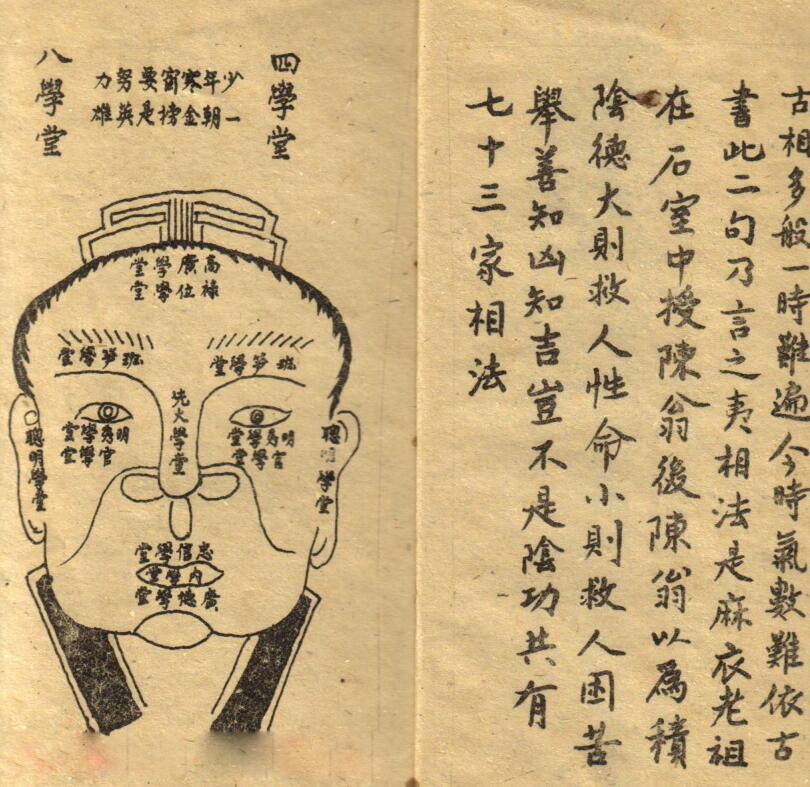 古相多般一時難遍今時氣數難依古
書此二句乃言之夷相法是麻衣老祖
在石室中授陳翁後陳翁以爲積
陰德大則救人性命小則救人困苦
舉善知凶知吉豈不是陰功共有
七十三家相法
四學堂
少年寒窗要努力
一朝金榜是英雄
八學堂
高廣學堂
祿位學堂
班笋學堂
班笋學堂
明秀學堂
官學堂
先火學堂
明秀學堂
官學堂
聰明學堂
聰明學堂
忠信學堂
内學堂
廣德學堂